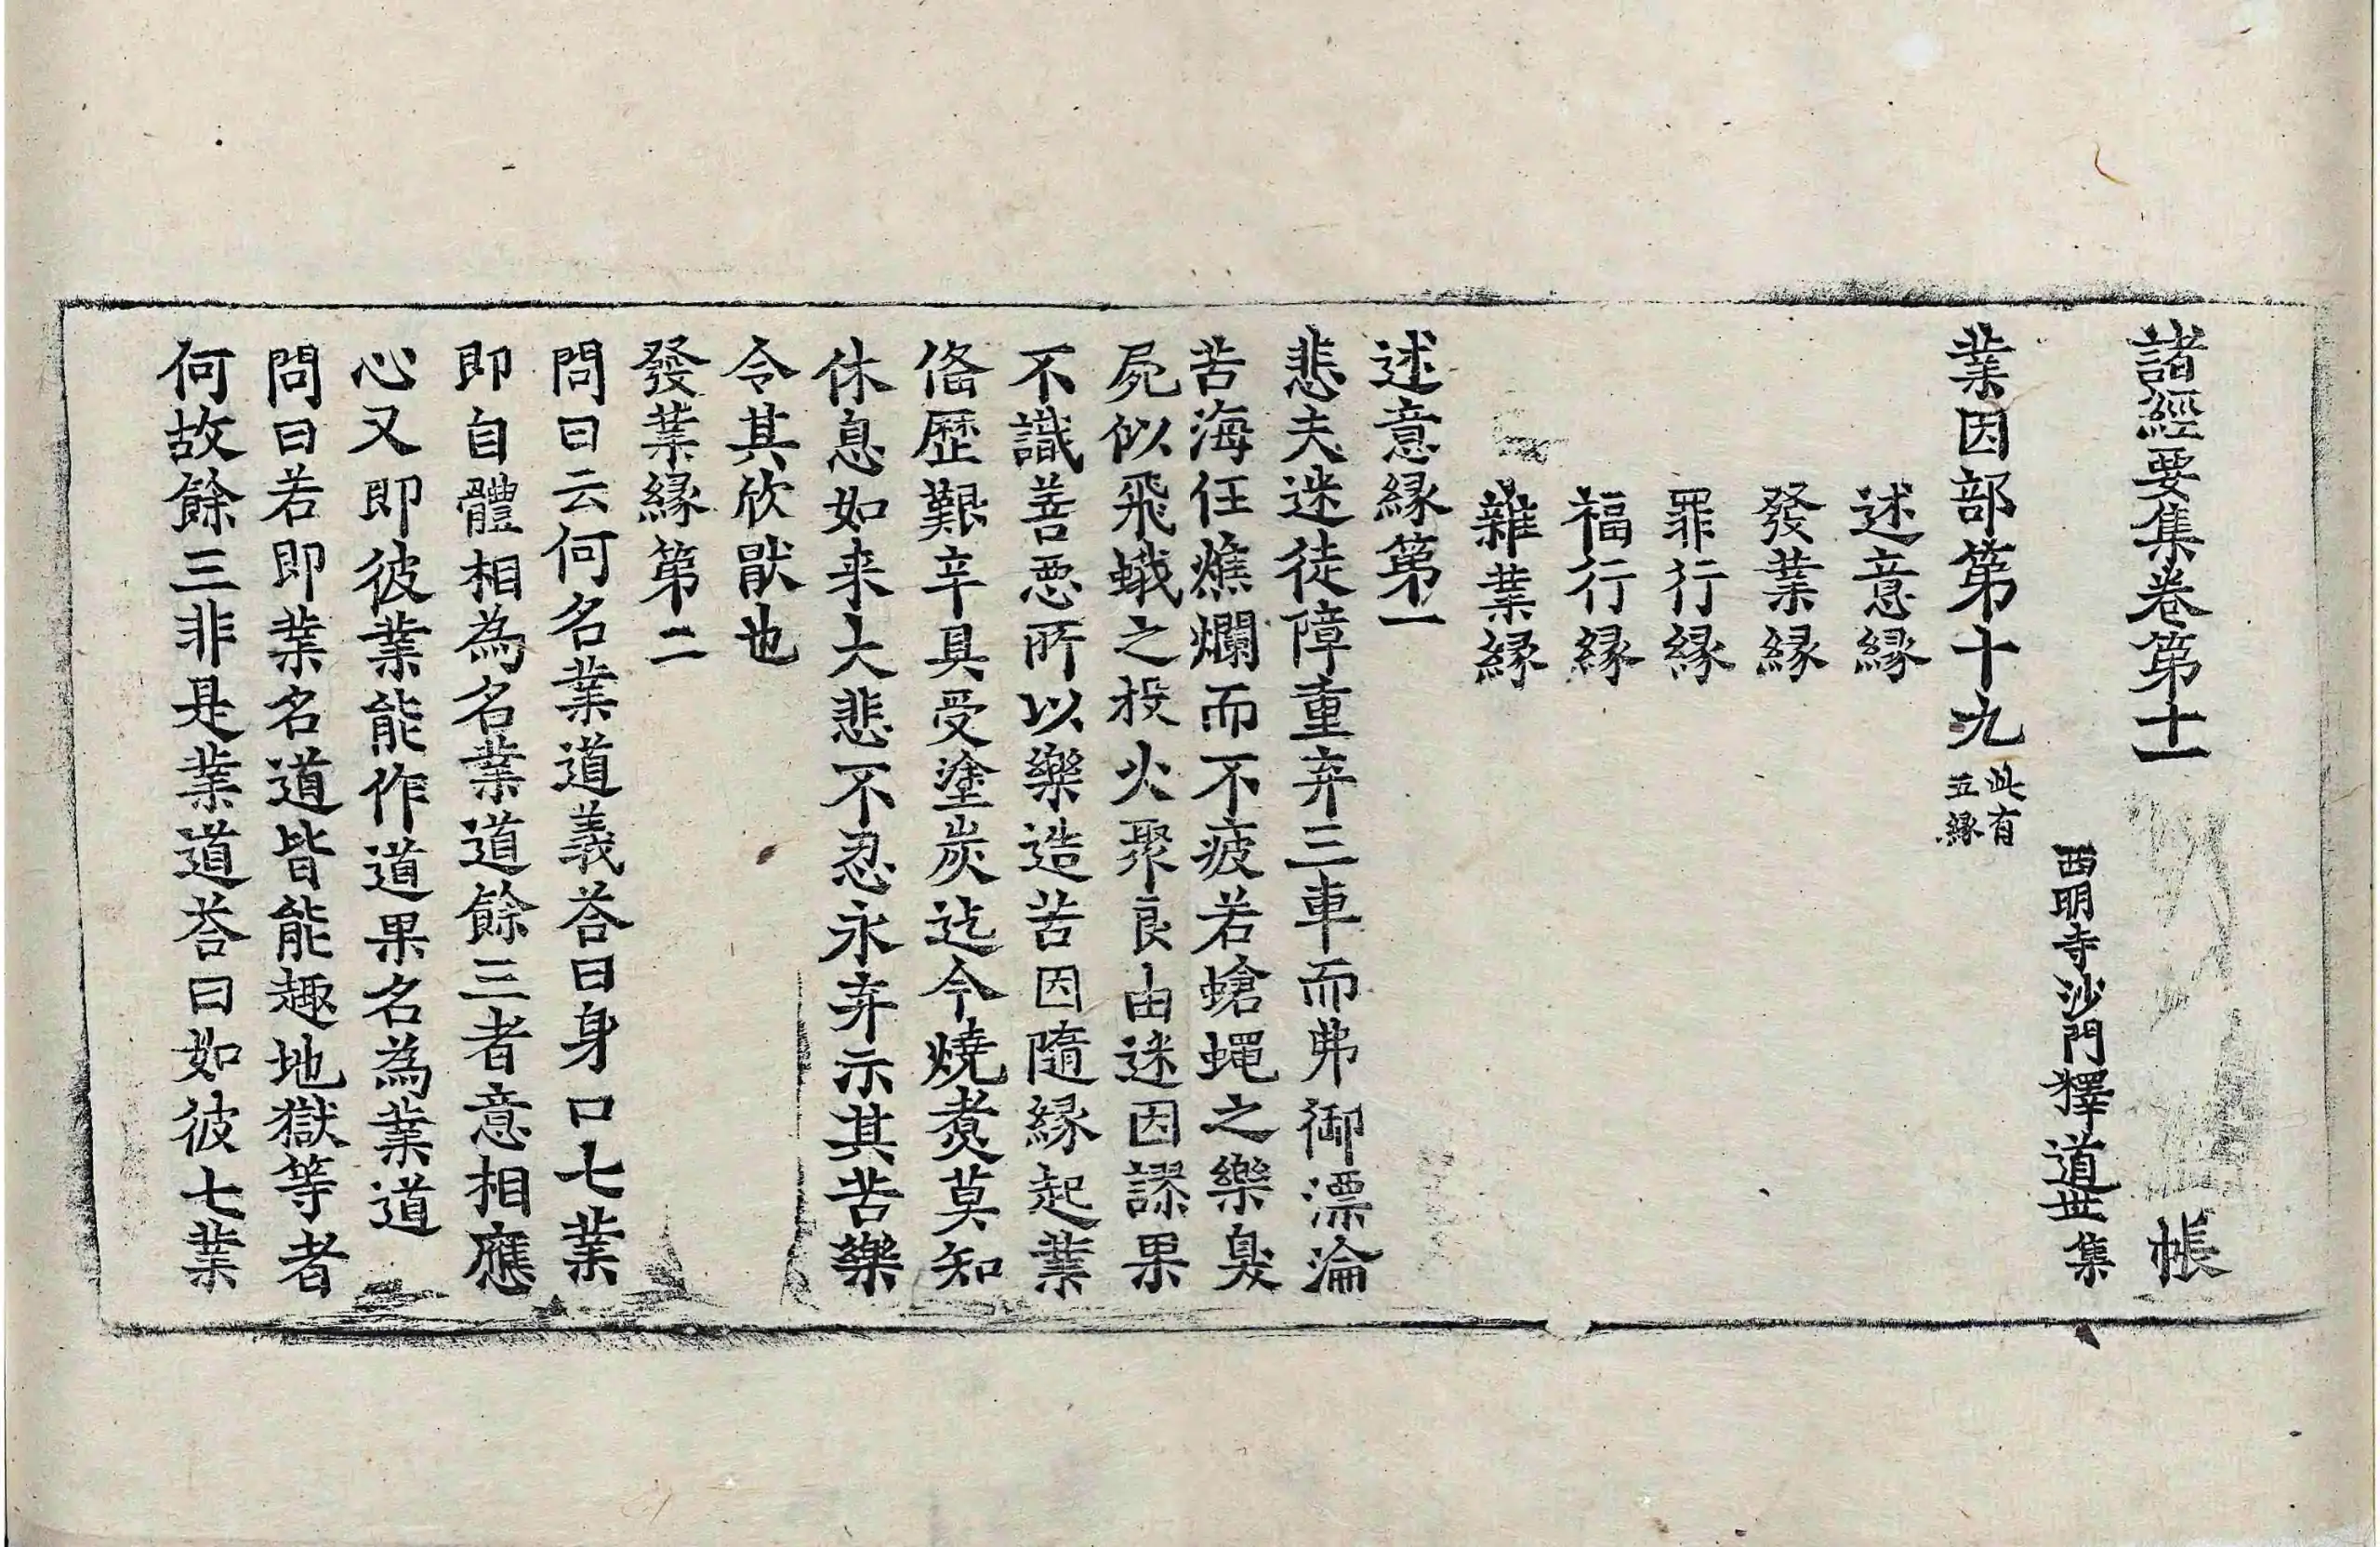 諸經要集卷第十一 帳
西明寺沙門釋道世集
業因部第十九 此有五緣
述意緣
發業緣
罪行緣
福行緣
雜業緣
述意緣第一
悲夫迷徒障重弃三車而弗御漂淪
苦海任燋爛而不疲若螥蝇之樂臭
屍似飛蛾之投火聚良由迷因謬果
不識善惡所以樂造苦因隨緣起業
俻歷艱辛具受塗炭迄今燒煑莫知
休息如来大悲不忍永弃示其苦樂
令其欣猒也
發業緣第二
問曰云何名業道義荅曰身口七業
即自體相為名業道餘三者意相應
心又即彼業能作道果名為業道
問曰若即業名道皆能趣地獄等者
何故餘三非是業道荅曰如彼七業